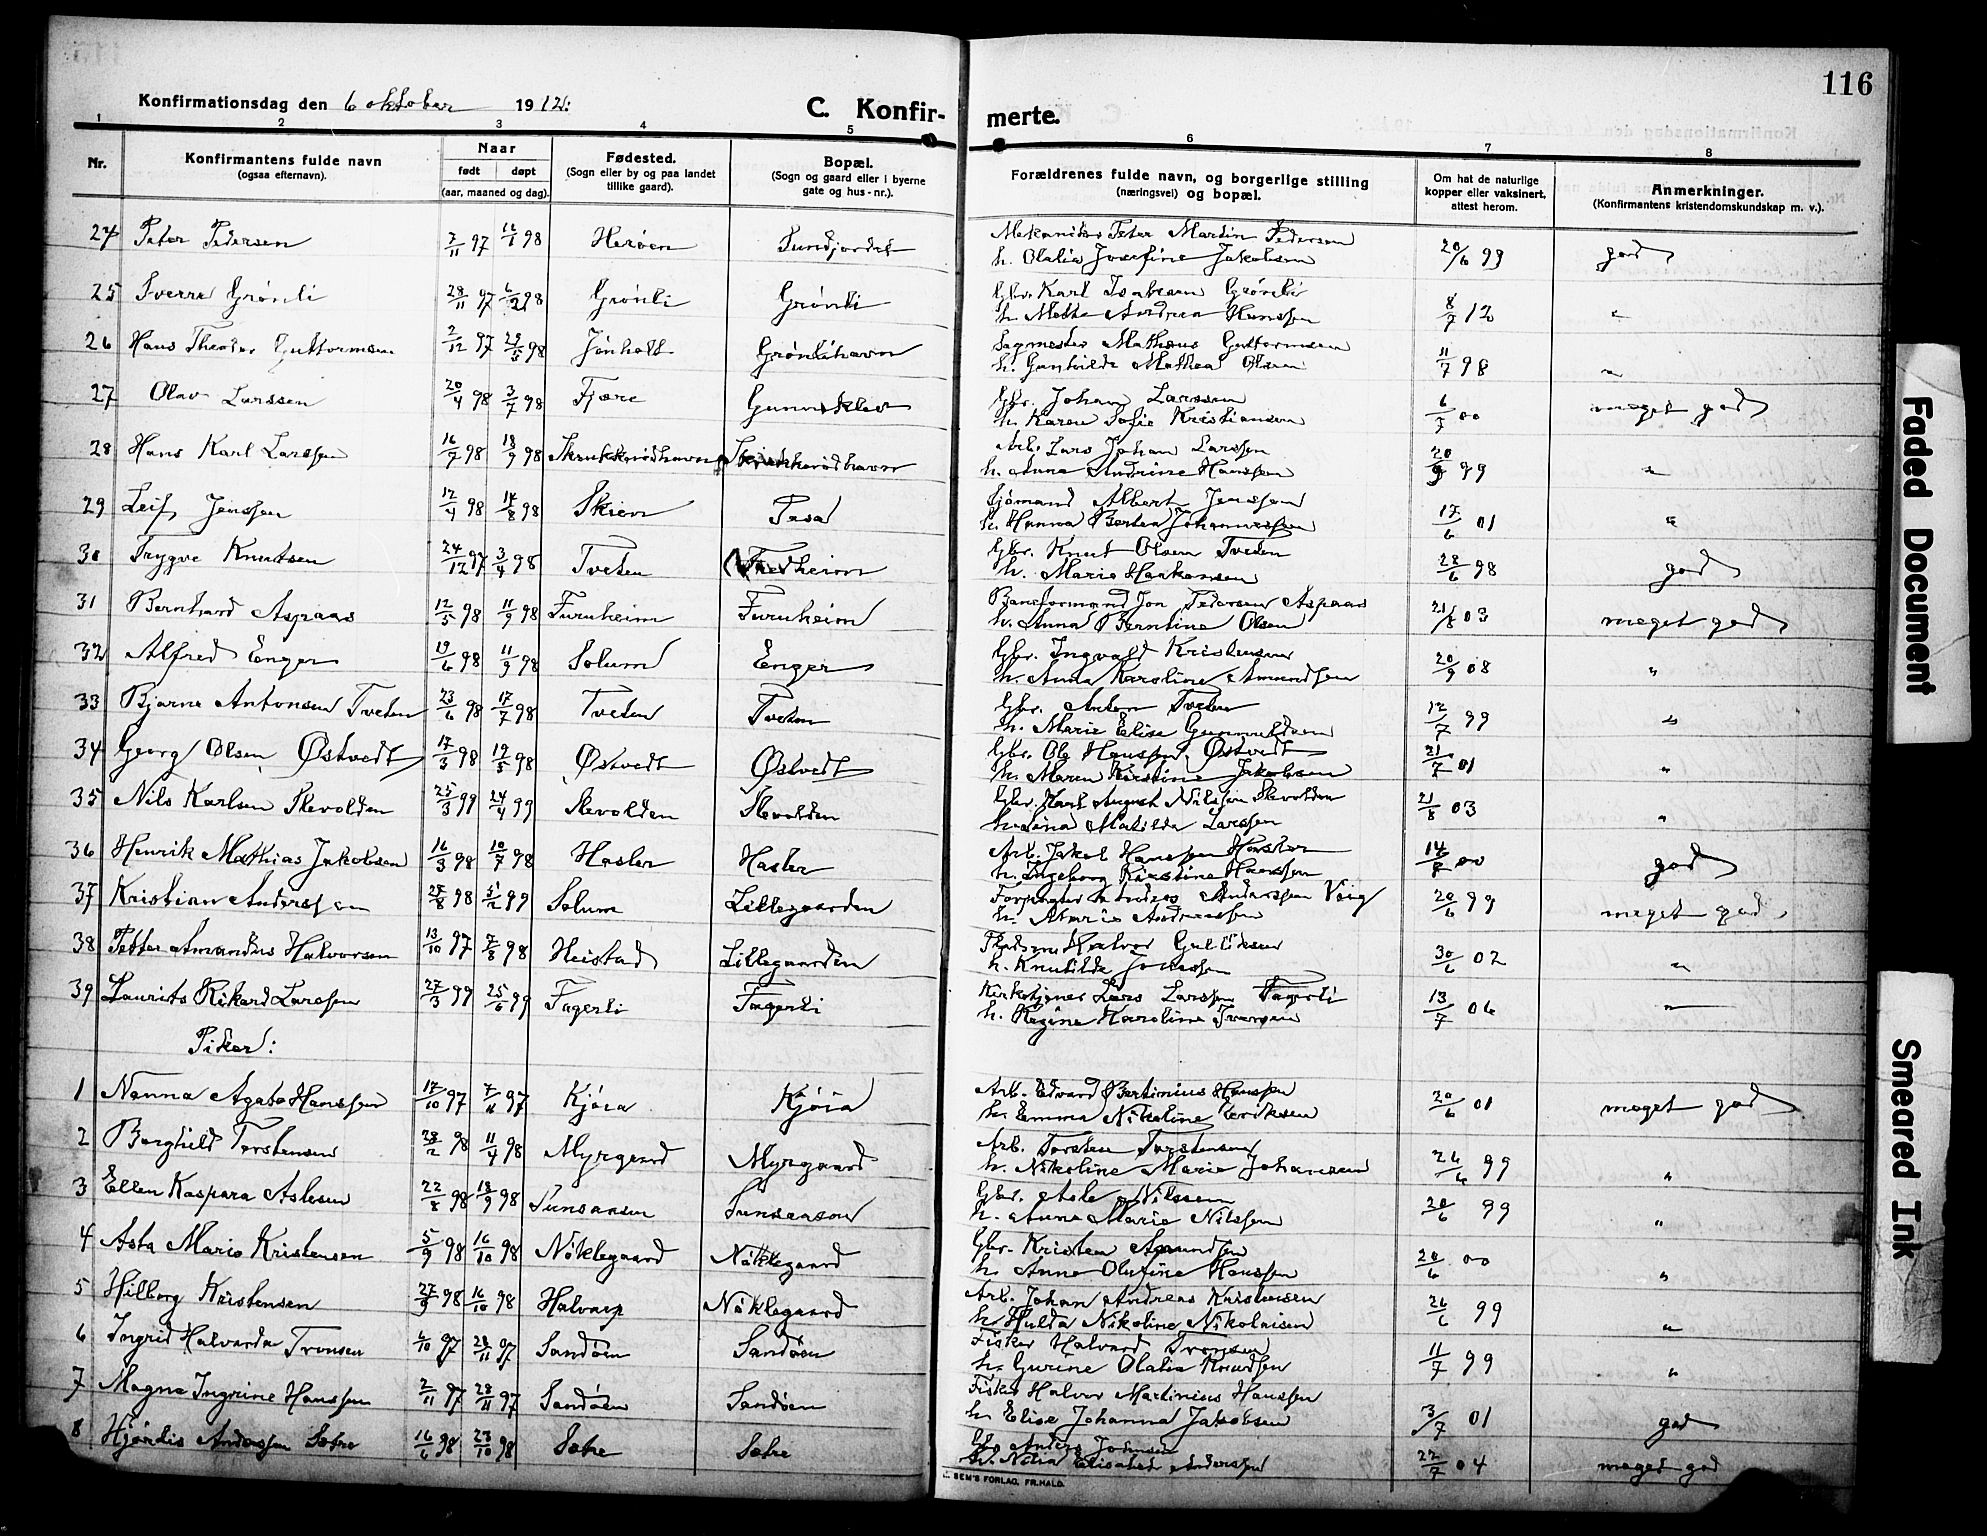 116
Konfirmationsdag den 6 oktober 1912.
C. Konfir-merte.
1 2 3 4 5 6 7 8
Nr.
Konfirmantens fulde navn
(ogsaa efternavn).
Naar
født døpt
(aar, maaned og dag).
Fødested.
(Sogn eller by og paa landet
tillike gaard).
Bopæl.
(Sogn og gaard eller i byerne
gate og hus-nr.).
Forældrenes fulde navn, og borgerlige stilling
(næringsvei) og bopæl.
Om hat de naturlige
kopper eller vaksinert,
attest herom.
Anmerkninger.
(Konfirmantens kristendomskundskap m. v.).
24 Peter Pedersen 7/11 97 98 Herøen Sundjordet
Mekaniker Peter Martin Pedersen
h. Olalia Josefine Jakobsen 20/6 99 god
25 Sverre Grønli 28/11 97 98 Grønli Grønli
Gbr. Karl Isaksen Grønli
h. Methe Andrea Hanssen 8/7 12 "
26 Hans Theodor Guttormsen 2/12 97 98 Grønlihavn
Sagmester Mathæus Guttormsen
h. Gunhilde Mathea Olsen 11/7 98 "
27 Olav Larssen 20/4 98 3/7 98 Fjære Gunneklev
Gbr. Johan Larssen
h. Karen Sofie Kristiansen 6/7 00 meget god
28 Hans Karl Larssen 16/7 98 18/9 98
Arb. Lars Johan Larssen
h. Anna Andrine Hanssen 99 "
29 Leif Jenssen 12/4 98 14/8 98 Skien
Sjømand Albert Jenssen
h. Hanna Berthea Johannessen 17/6 01 "
30 Trygve Knutsen 24/12 97 3/4 98 Tveten
Gbr. Knut Olsen Tveten
h. Marie Haakonsen 28/6 98 god
31 Bernhard Aspaas 12/5 98 11/9 98 Furuheim Furuheim
Baneformand Jon Pedersen Aspaas
h. Anna Berntine Olsen 21/8 03 meget god
32 Alfred Enger 19/6 98 11/9 98 Solum Enger
Gbr. Ingvald Kristensen
h. Anna Karoline Amundsen 20/9 08 "
33 Bjarne Antonsen Tveten 23/6 98 17/7 98 Tveten Tveten
Gbr. Anton Tveten
h. Marie Elise Gunnuldsen 12/7 99 "
34 Georg Olsen Østvedt 17/3 98 19/5 98 Østvedt Østvedt
Gbr. Ole Hanssen Østvedt
h. Maren Kirstine Jakobsen 21/7 01 "
35 Nils Karlsen Slevolden 25/3 99 24/4 99 Slevolden Slevolden
Gbr. Karl August Nilssen Slevolden
h. Lina Matilde Larssen 21/8 03 "
36 Henrik Mathias Jakobsen 16/3 98 10/7 98 Hasler Hasler
Arb. Jakob Hanssen Hasler
h. Ingeborg Kirstine Hanssen 00 god
37 Kristian Anderssen 98 99 Solum Lillegaarden
Forpagter Anders Anderssen
h. Marie Andreassen 20/6 99 meget god
38 Petter Amandus Halvorsen 13/10 97 98 Heistad Lillegaarden
Halvor Gulliksen
h. Knutilde Jonassen 30/6 02 "
39 Laurits Rikard Larssen 27/3 99 25/6 99 Fagerli Fagerli
Kirketjener Lars Larssen Fagerli
h. Regine Karoline Iversen 13/7 06 "
Piker:
1 Nanna Agate Hanssen 17/10 97 97 Kjøia Kjøia
Arb. Edvard Bertinius Hanssen
h. Emma Nikoline Eriksen 20/6 01 meget god
2 Borghild Torstensen 28/2 98 11/4 98 Myrgaard Myrgaard
Arb. Torsten Torstensen
h. Nikoline Marie Johansen 26/6 99 "
3 Ellen Kaspara Aslesen 22/8 98 18/9 98 Sunsaasen Sunsaasen
Gbr. Asle Nilssen
h. Anna Marie Nilssen 20/6 99 "
4 Asta Marie Kristensen 5/9 98 16/10 98 Nøklegaard Nøklegaard
Gbr. Kristen Amundsen
h. Anne Olufine Hanssen 20/6 00 "
5 Hilborg Kristensen 27/9 98 16/10 98 Halvarp Nøklegaard
Arb. Johan Andreas Kristensen
h. Hulda Nikoline Nikolaisen 26/6 99 "
6 Ingrid Halvarda Tronsen 6/10 97 28/11 97 Sandøen Sandøen
Fisker Halvard Tronsen
h. Gurine Olalia Knudsen 11/7 99 "
7 Magna Ingrine Hanssen 2/11 97 28/11 97 Sandøen Sandøen
Fisker Halvor Martinius Hanssen
h. Elise Johanna Jakobsen 3/7 01 god
8 Hjørdis Anderssen Sotre 16/6 98 23/10 98 Sotre Sotre
Gbr. Anders
h. Elisabeth Anderssen 22/7 04 meget god
SEM'S FORLAG, FR.HALD.
Faded Document
Smeared Ink